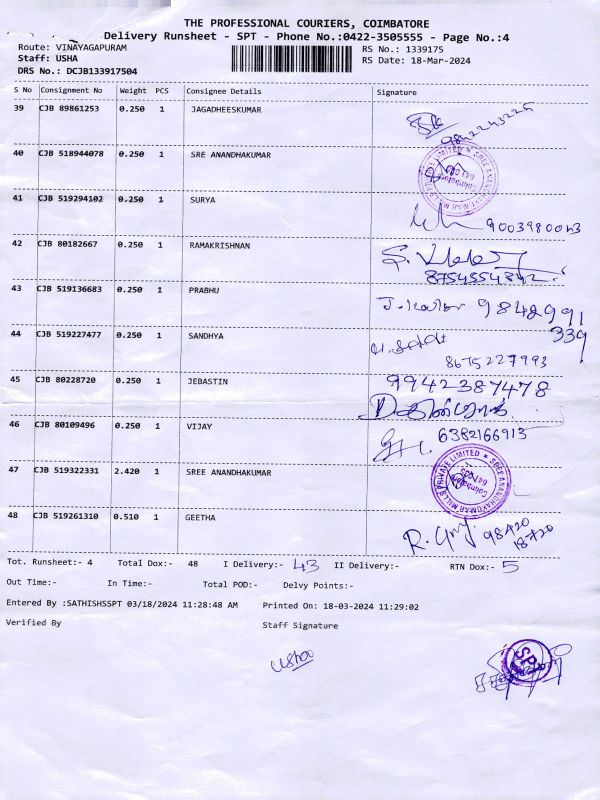 THE PROFESSIONAL COURIERS, COIMBATORE
Delivery Runsheet - SPT - Phone No.:0422-3505555 - Page No.:4
Route: VINAYAGAPURAM
RS No.: 1339175
Staff: USHA
RS Date: 18-Mar-2024
DRS No.: DCJB133917504
S No Consignment No Weight PCS Consignee Details Signature
39 CJB 89861253 0.250 1 JAGADHEESKUMAR
40 CJB 518944078 0.250 1 SRE ANANDHAKUMAR
41 CJB 519294102 0.250 1 SURYA
42 CJB 80182667 0.250 1 RAMAKRISHNAN
8754554842
43 CJB 519136683 0.250 1 PRABHU
9842991
339
44 CJB 519227477 0.250 1 SANDHYA
8675227993
45 CJB 80228720 0.250 1 JEBASTIN 9942387478
46 CJB 80109496 0.250 1 VIJAY 6382166913
47 CJB 519322331 2.420 1 SREE ANANDHAKUMAR
SREE ANANDHAKUMAR MILLS PRIVATE LIMITED
Coimbatore
48 CJB 519261310 0.510 1 GEETHA
98420
18720
Tot. Runsheet:- 4 Total Dox:- 48 I Delivery:- 43 II Delivery:- RTN Dox:- 5
Out Time:- In Time:- Total POD:- Delvy Points:-
Entered By :SATHISHSSPT 03/18/2024 11:28:48 AM Printed On: 18-03-2024 11:29:02
Verified By Staff Signature
SPT